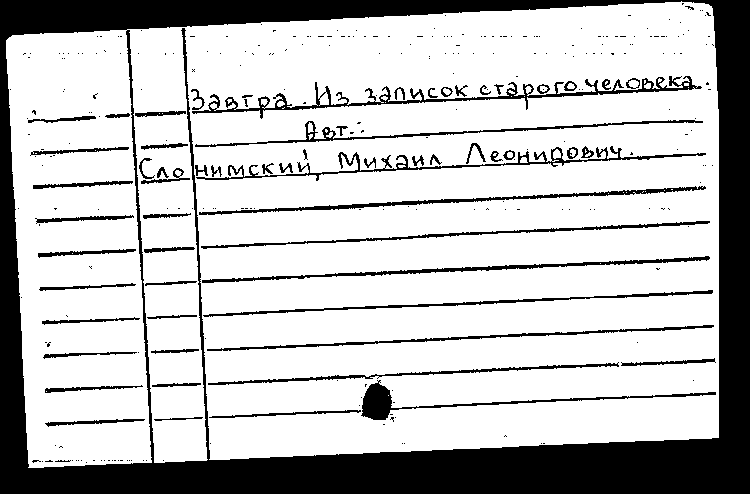 Завтра. Из записок старого человека.
Авт.:
Слонимский, Михаил Леонидович.